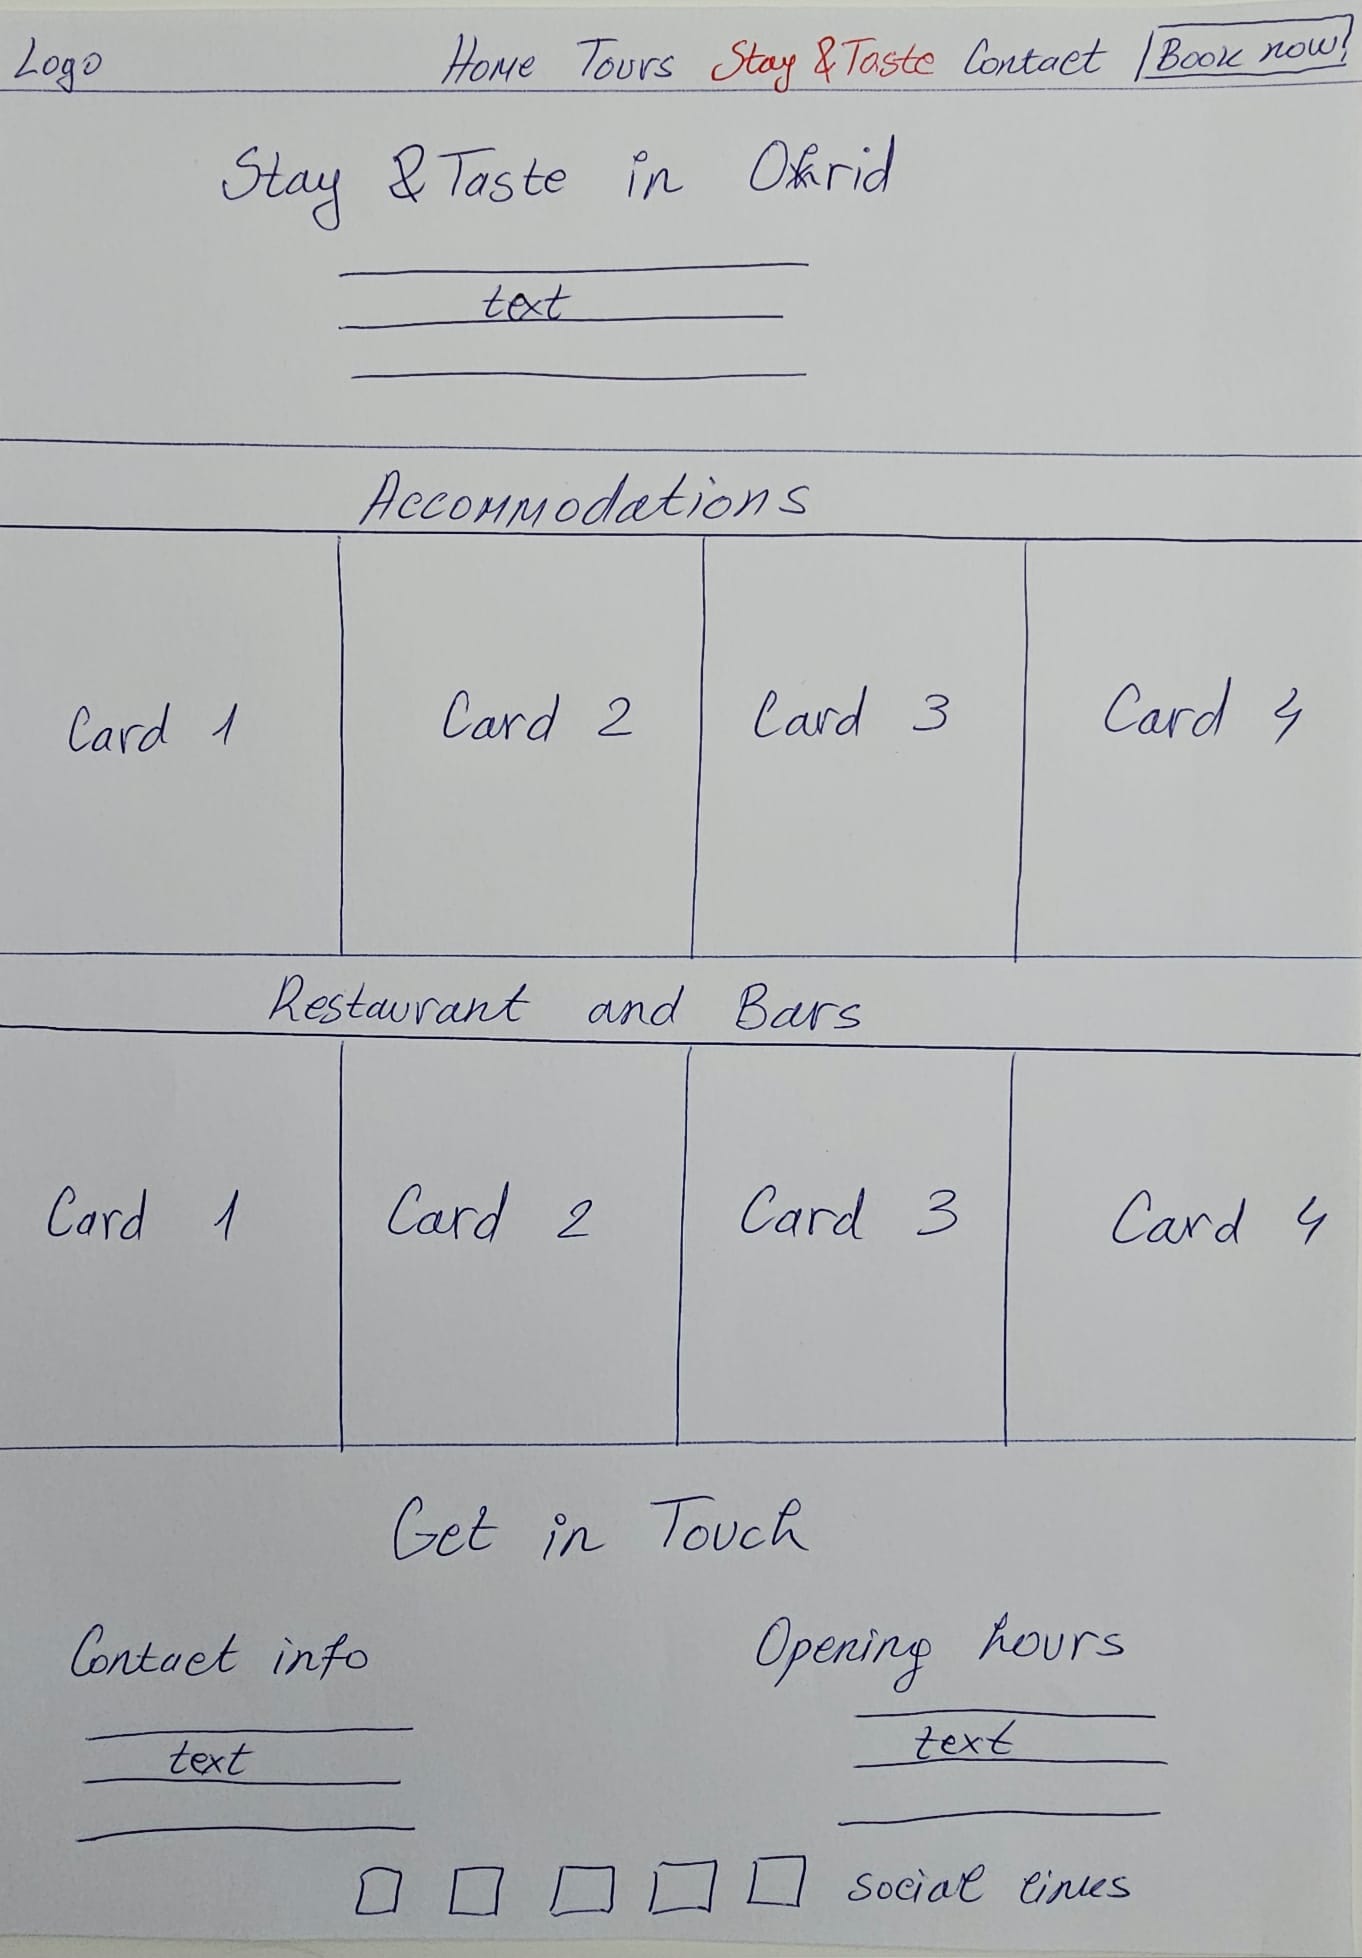 Logo Home Tours Stay & Taste Contact Book now!
Stay & Taste in Ohrid
text
Accommodations
Card 1 Card 2 Card 3 Card 4
Restaurant and Bars
Card 1 Card 2 Card 3 Card 4
Get in Touch
Contact info Opening hours
text text
social links